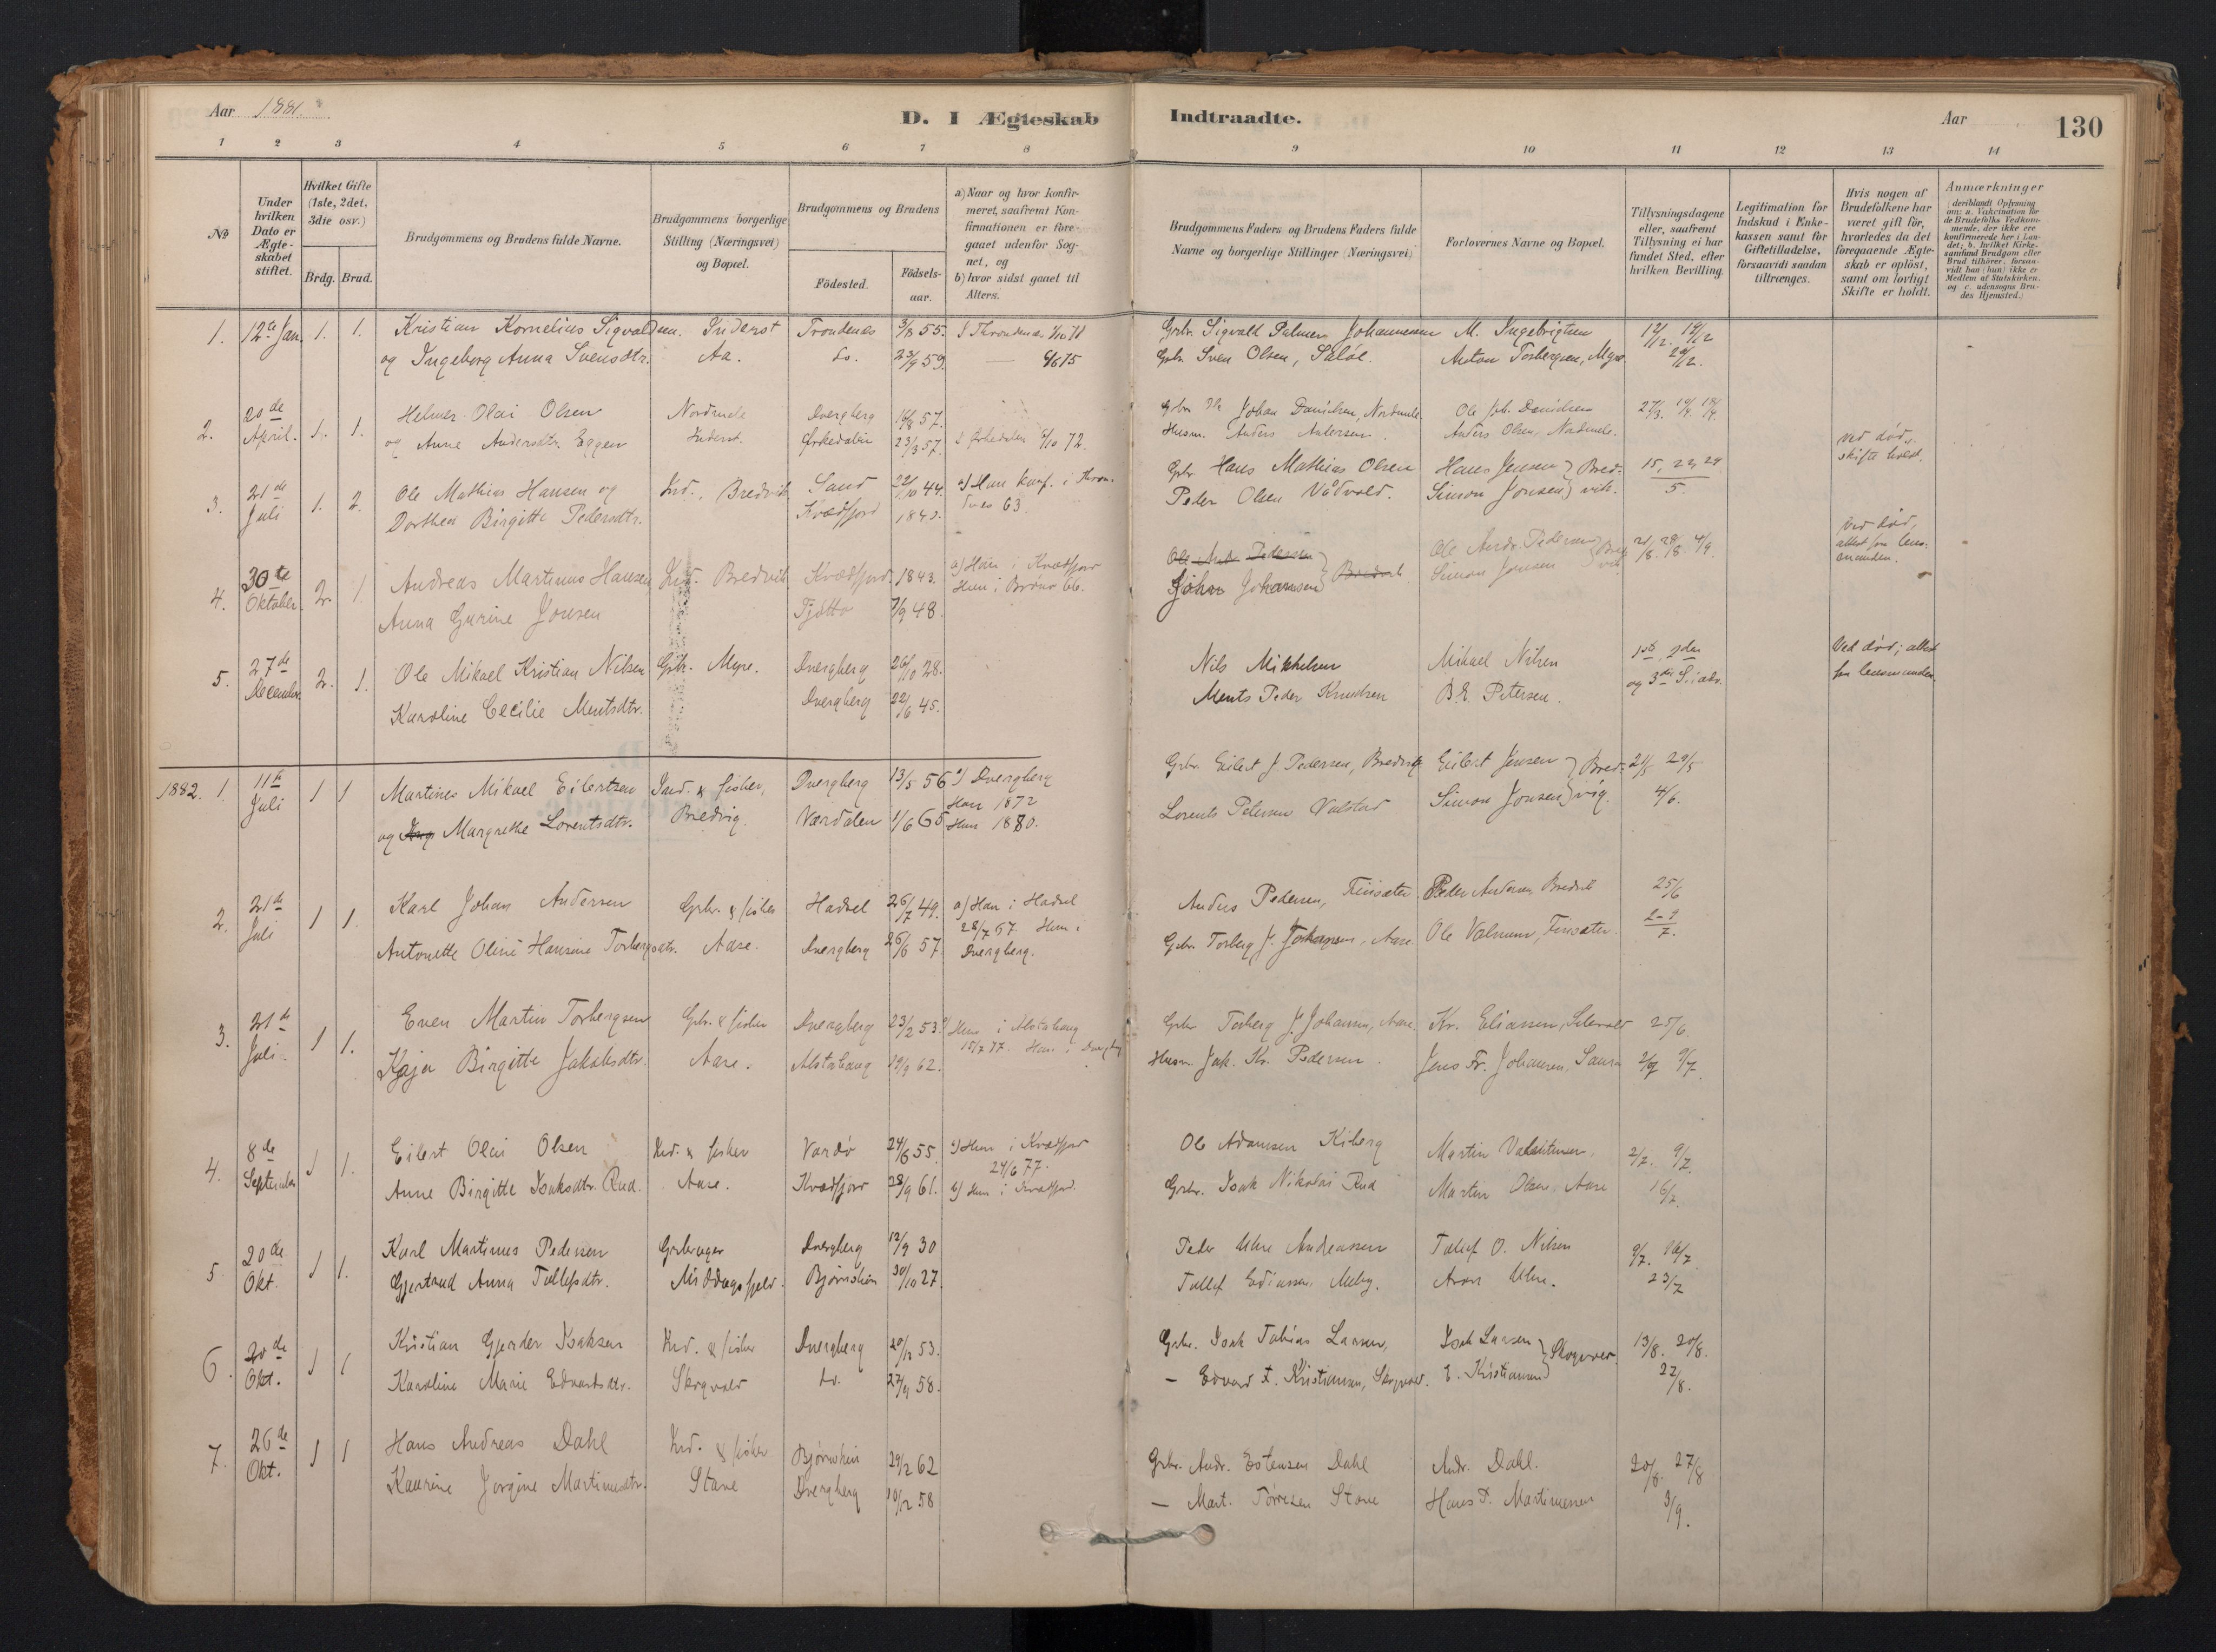 Aar 1881.
D. I Ægteskab
Indtraadte.
Aar
130
1 2 3 4 5 6 7 8 9 10 11 12 13 14
No
Under hvilken Dato er Ægteskabet stiftet.
Hvilket Gifte (1ste, 2det, 3die osv.)
Brdg. Brud.
Brudgommens og Brudens fulde Navne.
Brudgommens borgerlige Stilling (Næringsvei) og Bopæl.
Brudgommens og Brudens
Födested.
Födsels-aar.
a) Naar og hvor konfirmeret, saafremt Konfirmationen er foregaaet udenfor Sognet, og
b) hvor sidst gaaet til Alters.
Brudgommens Faders og Brudens Faders fulde Navne og borgerlige Stillinger (Næringsvei)
Forlovernes Navne og Bopæl.
Tillysningsdagene eller, saafremt Tillysning ei har fundet Sted, efter hvilken Bevilling.
Legitimation for Indskud i Enkekassen samt for Giftetilladelse, forsaavidt saadan tiltrænges.
Hvis nogen af Brudefolkene har været gift för, hvorledes da det foregaaende Ægteskab er oplöst, samt om lovligt Skifte er holdt.
Anmærkninger (deriblandt Oplysning om: a. Vakcination for de Brudefolks Vedkommende, der ikke ere konfirmerede her i Landet; b. hvilket Kirkesamfund Brudgom eller Brud tilhörer, forsaavidt han (hun) ikke er Medlem af Statskirken. og c. udensogns Brudes Hjemsted.)
1. 12te Jan. 1. 1. Kristian Kornelius Sigvaldsen. Inderst Trondenes 3/8 55. Grbr. Sigvald Palmer Johannessen M. Ingebrigtsen 12/2. 19/2
og Ingeborg Anna Svensdtr. Aa. do. 23/9 59. 4/6 75 Grbr. Sven Olsen, Anton Torbergsen, Myre.
2. 20de April. 1. 1. Helmer Olai Olsen Nordmele Dverberg 16/8 57. Johan Danielsen, Nordmele Ole Joh. Danielsen 27/3.
og Anne Andersdtr. Eggen Inderst. Ørkedalen 23/3 57. i Ørkedalen 6/10 72. Husm. Anders Andersen. Anders Olsen, Nordmele.
3. 21de Juli 1. 2. Ole Mathias Hansen og Ind., Bredvik Sand 22/10 44. a) Hun konf. i Thron- Grbr. Hans Mathias Olsen Hans Jensen } Bred- 15, 22, 29. ved død, skifte holdt.
Dorthea Birgitte Pedersdtr. Kvædfjord 1840. dnes 63. Peder Olsen Vådvold. Simon Jonsen } vik. 5.
4. 30te Oktober. 2. 1. Andreas Martinus Hansen Ind. Bredvik Kvædfjord 1843. a) Han i Kvædfjord Ole Andr. Pedersen Ole Andr. Pedersen } Bred- 21/8. 28/8 4/9. Ved død, attest fra lensmanden.
Anna Gurine Jonsen Tjøtta 7/9 48. Hun i Brønø 66. Johan Johannsen } Bredvik. Simon Jonsen } vik.
5. 27de December 2. 1. Ole Mikael Kristian Nilsen Grbr. Myre. Dverberg 26/10 28. Nils Mikkelsen Mikael Nilsen 1ste, 2den Ved død; attest
Karoline Cecilie Mentsdtr. Dverberg 22/6 45. Ments Peder Knudsen B. E. Petersen. og 3die S. i adv. fra lensmanden.
1882. 1. 11te Juli 1 1 Martines Mikael Eilertsen Ind. & fisker, Dverberg 13/5 56 a) Dverberg Grbr. Eilert J. Pedersen, Bredvig Eilert Jensen } Bred- 21/5 29/5
og Margrethe Lorentsdtr. Bredvig. Værdalen 1/6 65 Han 1872 Hun 1880. Lorents Petersen Valstad Simon Jonsen } vig. 4/6.
2. 21de Juli 1 1. Karl Johan Andersen Grbr. & fisker Hadsel 26/7 49. a) Han i Hadsel Anders Pedersen, Finsæter. Peder Andersen Bredvik 25/6
Antonette Oline Hansine Torbergsdtr. Aase. Dverberg 26/6 57. 28/7 67. Hun i Dverberg. Grbr. Torberg J. Johansen, Aase. Ole Valsman, Finsæter. 2-9/7.
3. 21de Juli. 1 1. Even Martin Torbergsen Grbr. & fisker Dverberg 23/2 53. a) Hun i Alstahaug Grbr. Torberg J. Johansen, Aase. Kr. Eliassen, 25/6.
Kaja Birgitte Jakobsdtr. Aase. Alstahaug 19/9 62. 15/7 77. Han i Dverberg Husm. Jak. Kr. Pedersen. Jens Fr. Johansen, Saura 2/7 9/7.
4. 8de September 1 1. Eilert Olai Olsen Ind. & fisker Vardø 24/6 55. a) Hun i Kvædfjord Ole Adamsen Kiberg Martin Valentinsen. 2/7. 9/7.
Anne Birgitte Isaksdtr. Rud. Aase. Kvædfjord 28/9 61. 24/6 77. b) Hun i Kvædfjord. Grbr. Isak Nikolai Rud Martin Olsen Aase 16/7
5. 20de Okt. 1 1. Karl Martinus Pedersen Grbruger Dverberg 12/9 30 Peder Uhre Andreassen Tollef O. Nilsen 9/7. 16/7.
Gjertrud Anna Tollefsdtr. Middagsfjeld. Bjørnskin 30/10 27. Tollef Ediassen, Meby. Aron Uhre. 23/7
6. 20de Okt. 1 1 Kristian Gjerder Isaksen Ind. & fisker Dverberg 20/12 53. Grbr. Isak Tobias Larsen, Isak Larsen } Skogvold. 13/8. 20/8.
Karoline Marie Edvardsdtr. Skogvold do. 27/4 58. — Edvard A. Kristiansen, Skogvold. E. Kristiansen } 27/8.
7. 26de Okt. 1 1 Hans Andreas Dahl Ind. & fisker Bjørnskin 29/2 62 Grbr. Andr. Estensen Dahl Andr. Dahl. 20/8. 27/8
Kaurine Jorgine Martinusdtr. Stave Dverberg 10/12 58 — Mart. Tørresen Stave Hans P. Martinussen 3/9.